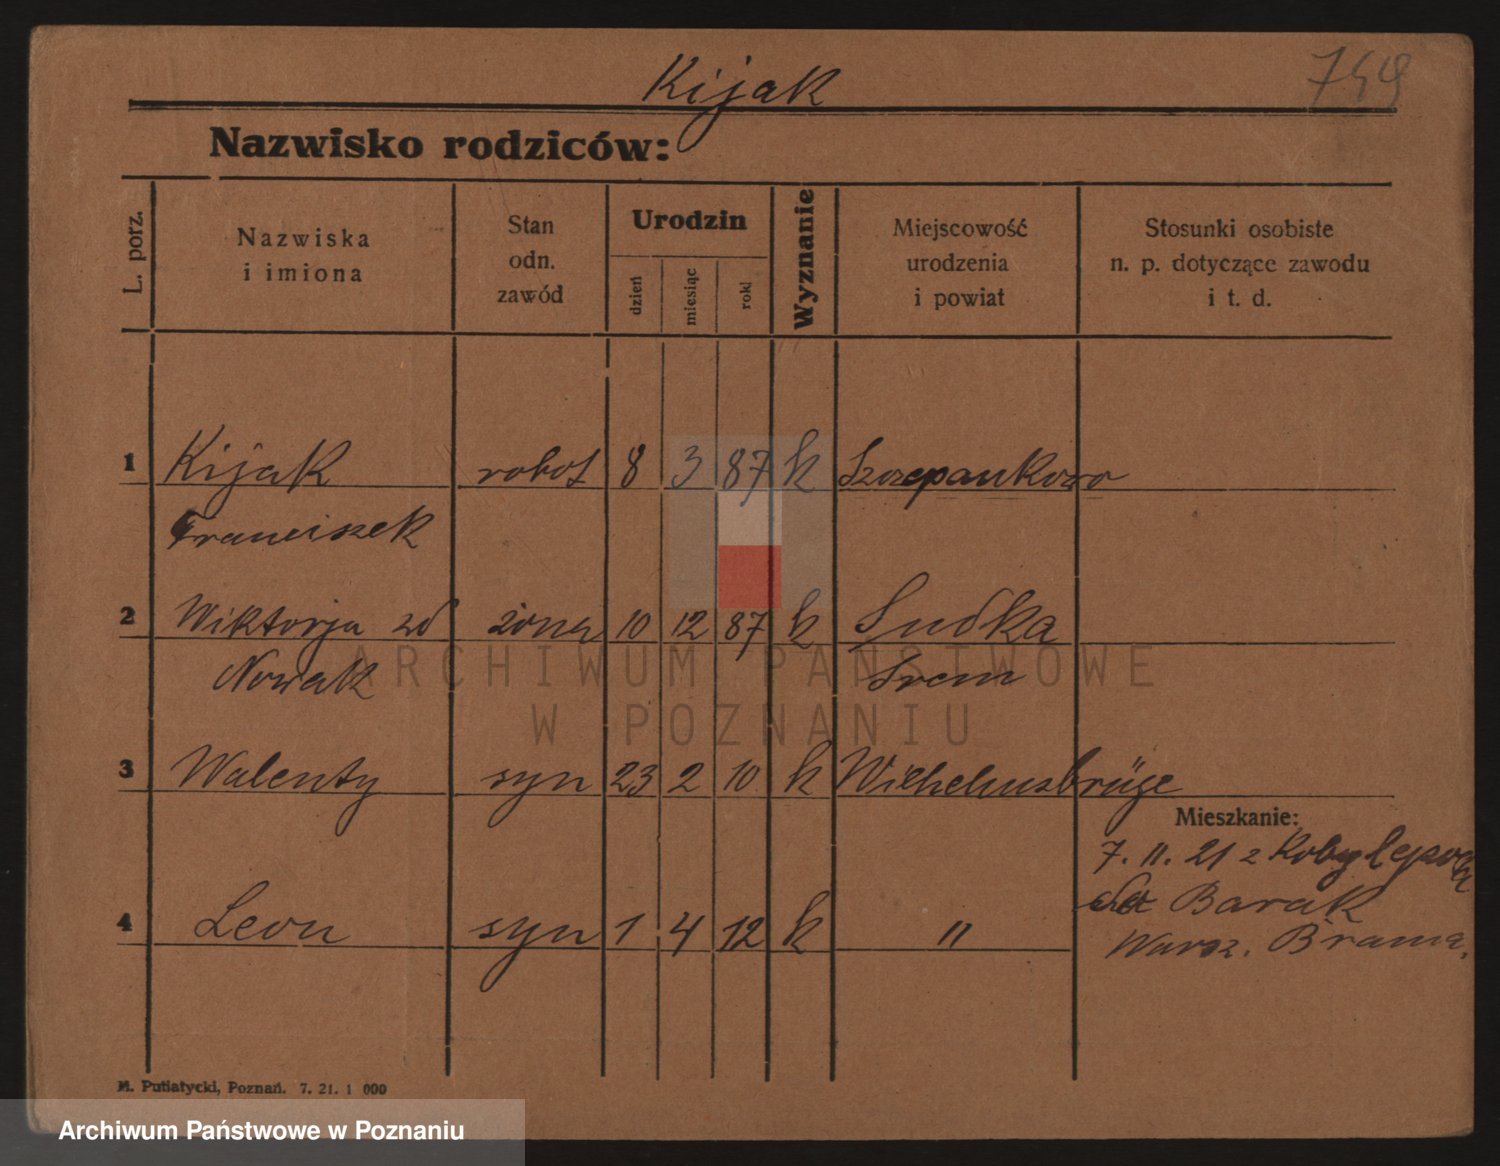 Kijak
749
Nazwisko rodziców:
L. porz.
Nazwiska
i imiona
Stan
odn.
zawód
Urodzin
dzień
miesiąc
rok
Wyznanie
Miejscowość
urodzenia
i powiat
Stosunki osobiste
n. p. dotyczące zawodu
i t. d.
1 Kijak robot 8 3 87 k Szczepankowo
Franciszek
2 Wiktorja zd żona 10 12 87 k
Nowak Srem
3 Walenty syn 23 2 10 k Wilhelmsbrüge
Mieszkanie:
7. 11. 21 z Kobylepola
4 Leon syn 1 4 12 k "
Barak
Warsz. Brama.
M. Putiatycki, Poznań. 7. 21. 1 000
ARCHIWUM PAŃSTWOWE
W POZNANIU
Archiwum Państwowe w Poznaniu